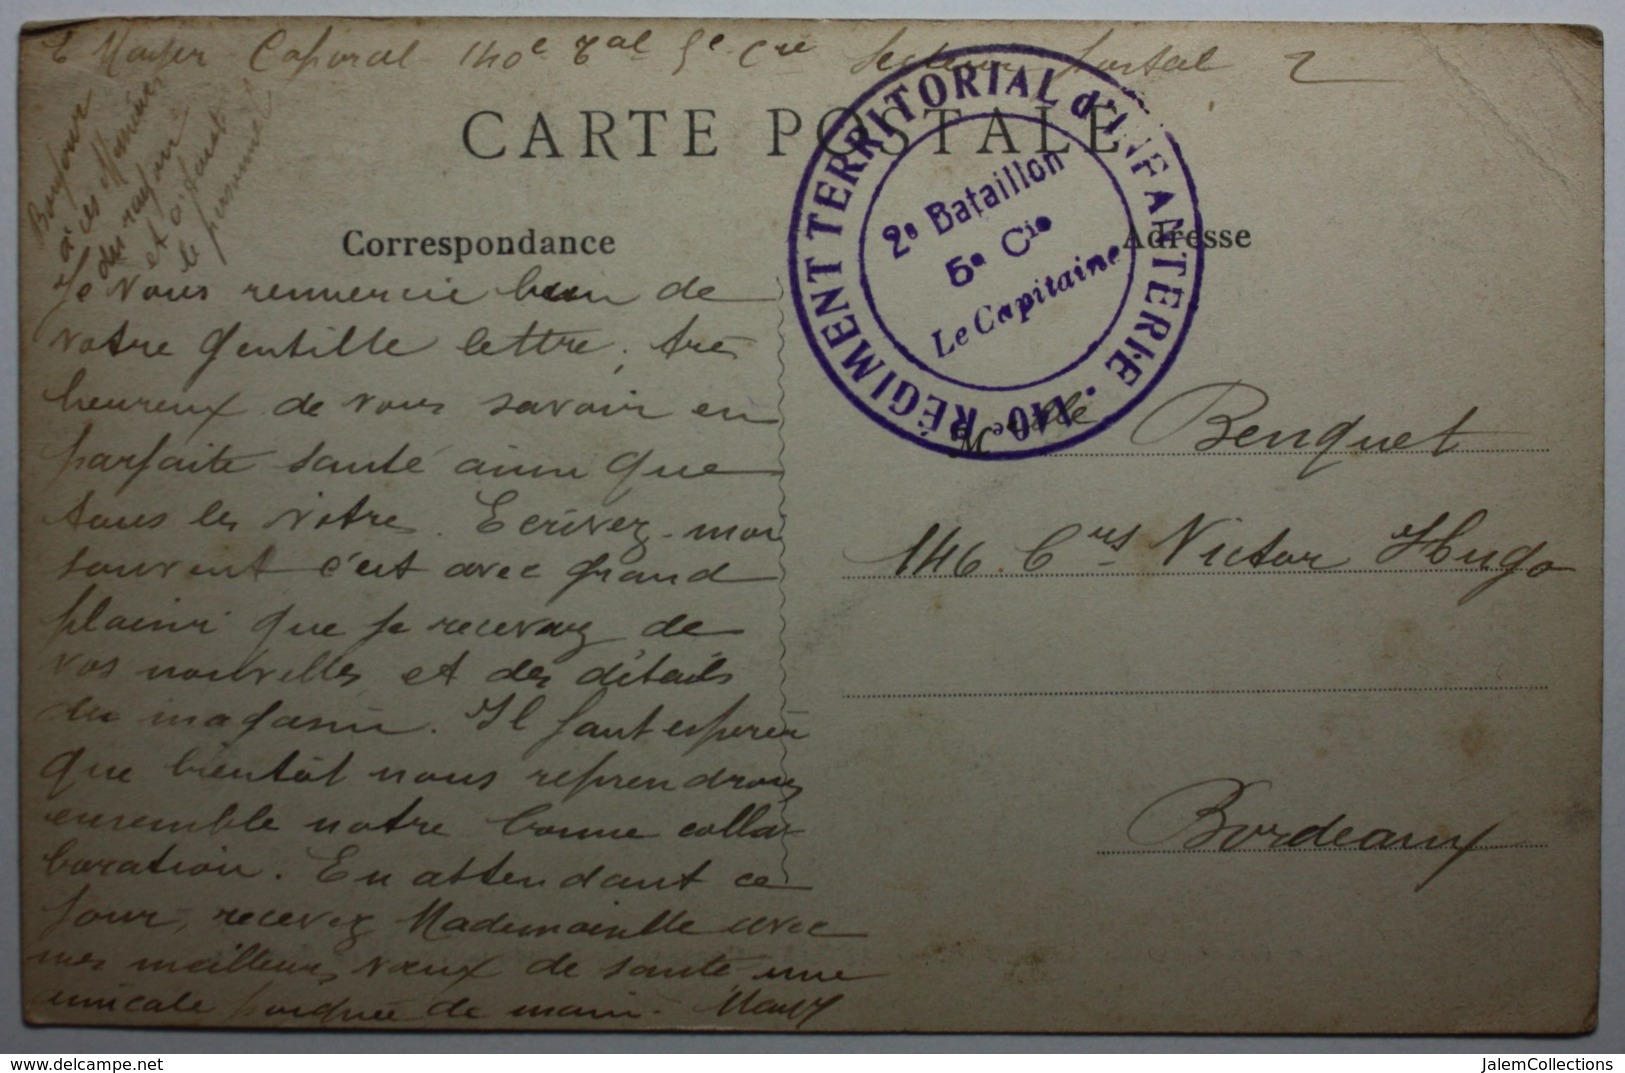 E Mayer Caporal 140e Tal 5e Cie Secteur Postal 2
Bonjour
à ces Messieurs
du rayon
et à tout
le personnel
CARTE POSTALE
Correspondance
Adresse
140e RÉGIMENT TERRITORIAL d'INFANTERIE
2e Bataillon
5e Cie
Le Capitaine
Je vous remercie bien de
votre gentille lettre, très
heureux de vous savoir en
parfaite santé ainsi que
tous les vôtres. Ecrivez-moi
souvent c'est avec grand
plaisir que je recevrez de
vos nouvelles et des détails
du magasin. Il faut espérer
que bientôt nous reprendrons
ensemble notre bonne colla-
boration. En attendant ce
jour, recevez Mademoiselle avec
mes meilleurs vœux de santé une
amicale poignée de main.
Melle Benquet
146 Crs Victor Hugo
Bordeaux
delcampe.net
JalemCollections